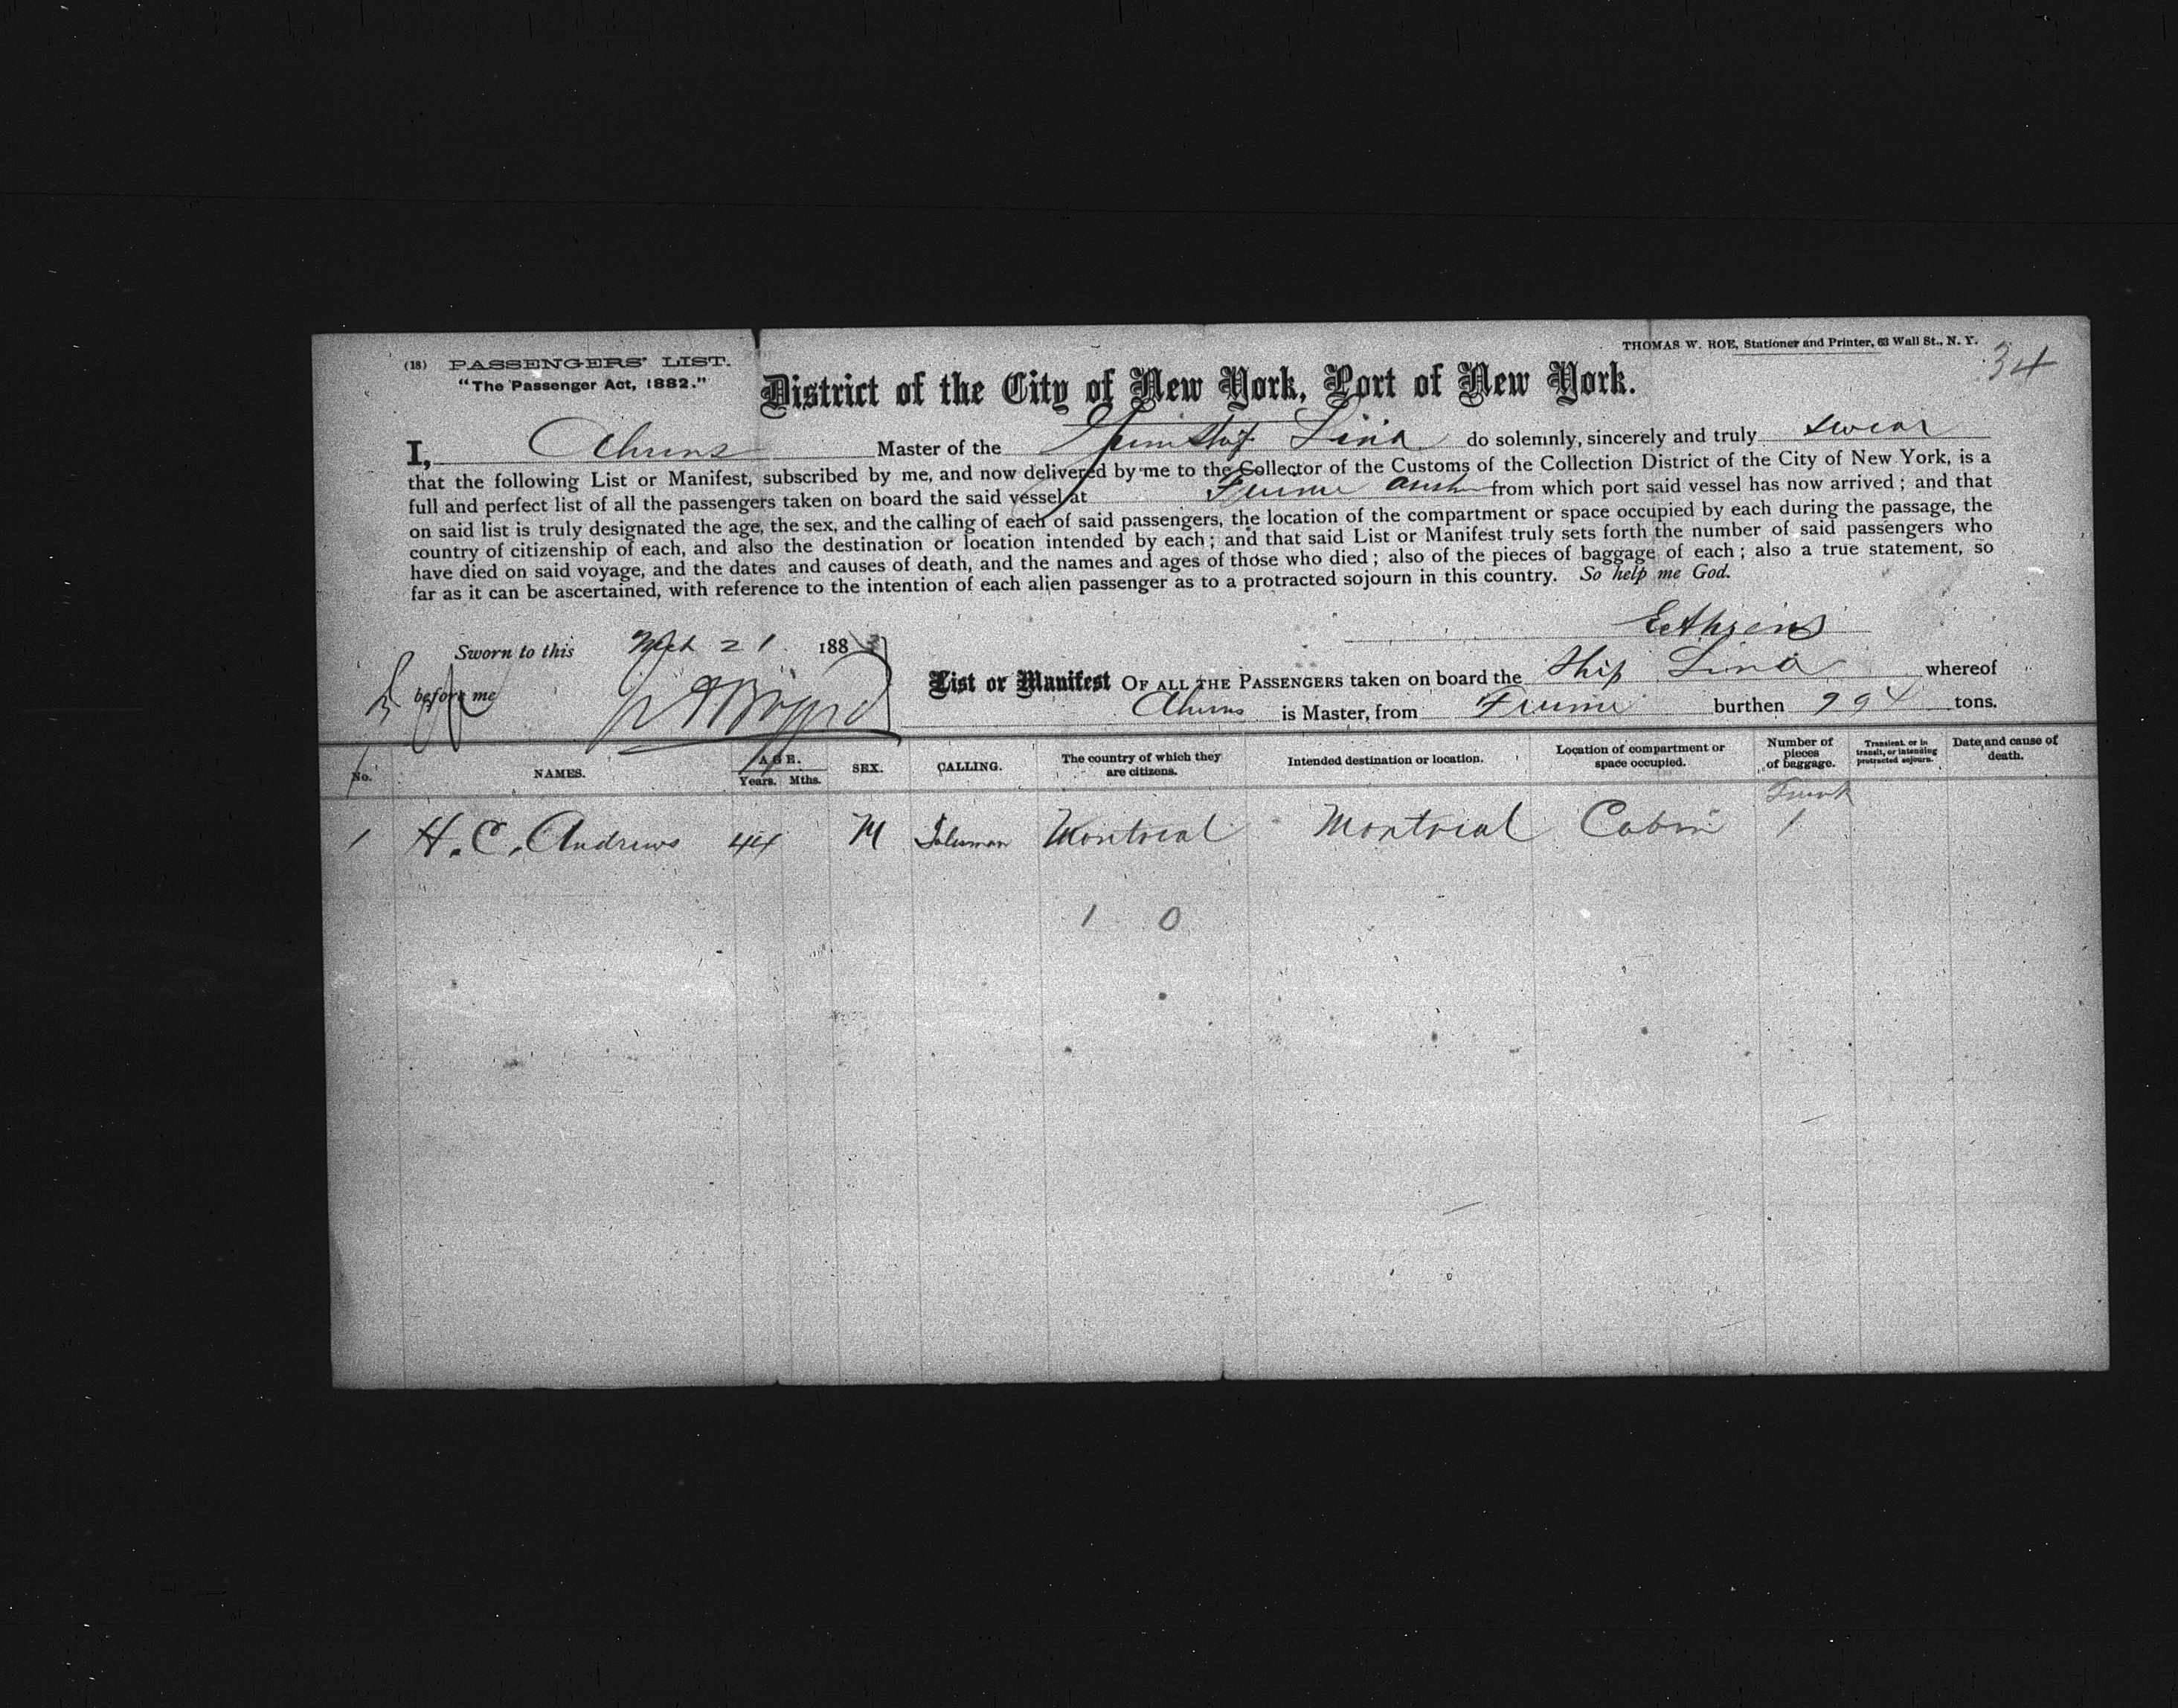 THOMAS W. ROE, Stationer and Printer, 63 Wall St., N. Y.
34
(18) PASSENGERS' LIST.
"The Passenger Act, 1882."
District of the City of New York, Port of New York.
I, Ahrens Master of the Ship Lina do solemnly, sincerely and truly swear
that the following List or Manifest, subscribed by me, and now delivered by me to the Collector of the Customs of the Collection District of the City of New York, is a
full and perfect list of all the passengers taken on board the said vessel at Fiume from which port said vessel has now arrived; and that
on said list is truly designated the age, the sex, and the calling of each of said passengers, the location of the compartment or space occupied by each during the passage, the
country of citizenship of each, and also the destination or location intended by each; and that said List or Manifest truly sets forth the number of said passengers who
have died on said voyage, and the dates and causes of death, and the names and ages of those who died; also of the pieces of baggage of each; also a true statement, so
far as it can be ascertained, with reference to the intention of each alien passenger as to a protracted sojourn in this country. So help me God.
E. Ahrens
Sworn to this Mch 21 188
before me
List or Manifest OF ALL THE PASSENGERS taken on board the Ship Lina whereof
Ahrens is Master, from Fiume burthen 994 tons.
No. NAMES. AGE. Years. Mths. SEX. CALLING. The country of which they are citizens. Intended destination or location. Location of compartment or space occupied. Number of pieces of baggage. Transient, or in transit, or intending protracted sojourn. Date and cause of death.
Trunk
1 H. C. Andrews 44 M Salesman Montreal Montreal Cabin 1
1 0